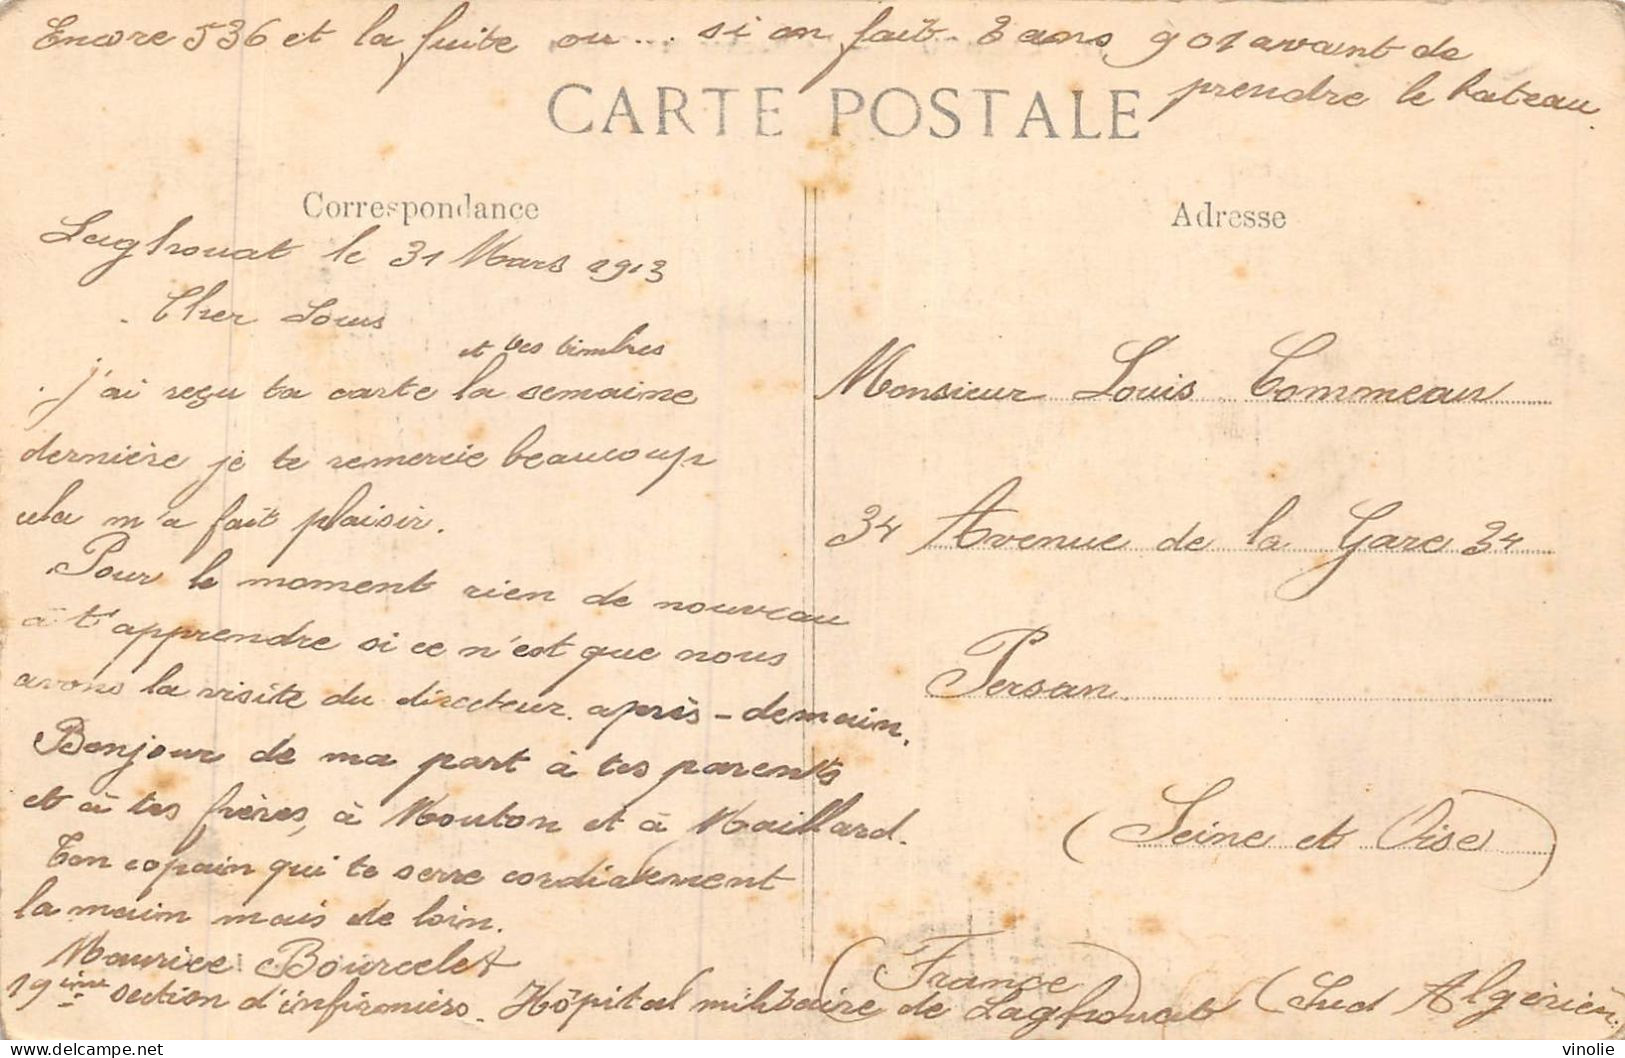 Encore 536 et la fuite ou... si on fait 3 ans 901 avant de
prendre le bateau.
CARTE POSTALE
Correspondance
Adresse
Laghouat le 31 Mars 1913
Cher Louis
et tes timbres
j'ai reçu ta carte la semaine
dernière je te remercie beaucoup
cela m'a fait plaisir.
Pour le moment rien de nouveau
à t'apprendre si ce n'est que nous
avons la visite du directeur après-demain.
Bonjour de ma part à tes parents
et à tes frères, à Mouton et à Maillard.
Ton copain qui te serre cordialement
la main mais de loin.
Maurice Bourcelet
19ème section d'infirmiers. Hôpital militaire de Laghouat (Sud Algérien)
Monsieur Louis Commeau
34 Avenue de la Gare 34
Persan
(Seine et Oise)
(France)
vinolie